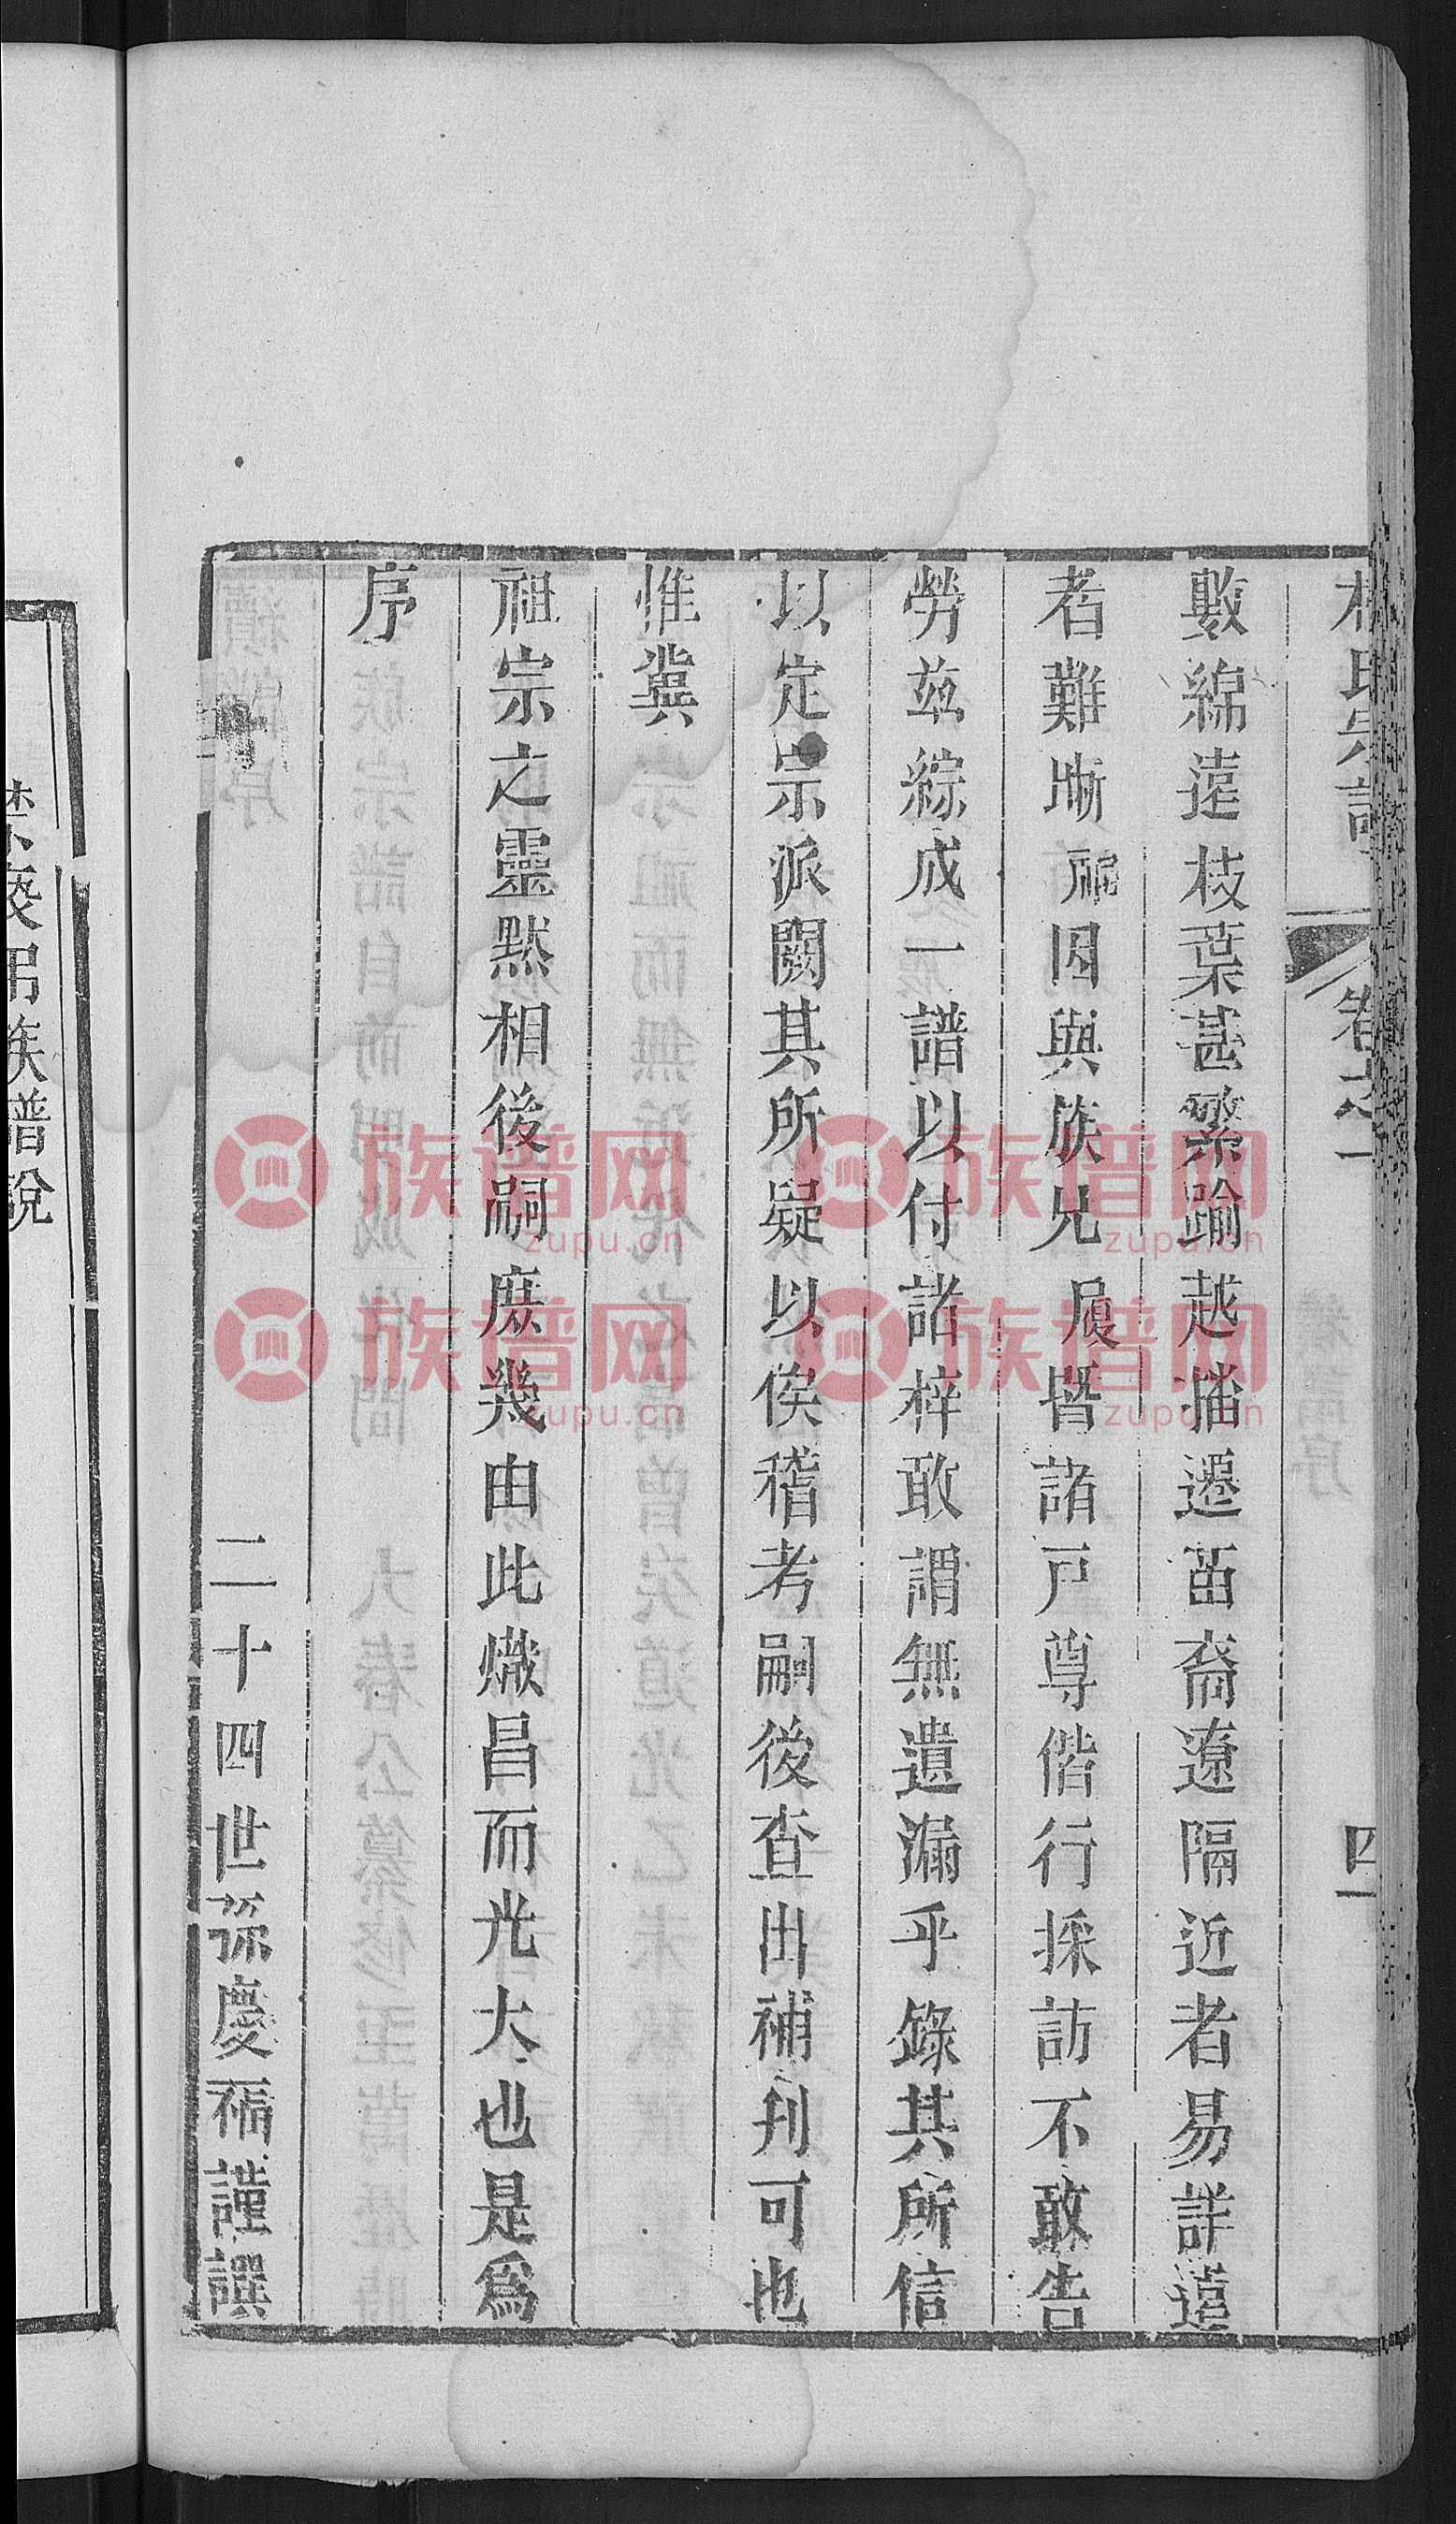 氏宗譜 卷之一 四
數綿遠枝葉甚繁踰越播遷苗裔遼隔近者易詳遠
者難晰福因與族兄履暨諸戸尊偕行採訪不敢告
勞茲綜成一譜以付諸梓敢謂無遺漏乎錄其所信
以定宗派闕其所疑以俟稽考嗣後查出補刋可也
惟冀
祖宗之靈默相後嗣庶幾由此熾昌而光大也是爲
序
二十四世孫慶福謹譔
族譜說
族谱网
zupu.cn
族谱网
zupu.cn
族谱网
zupu.cn
族谱网
zupu.cn